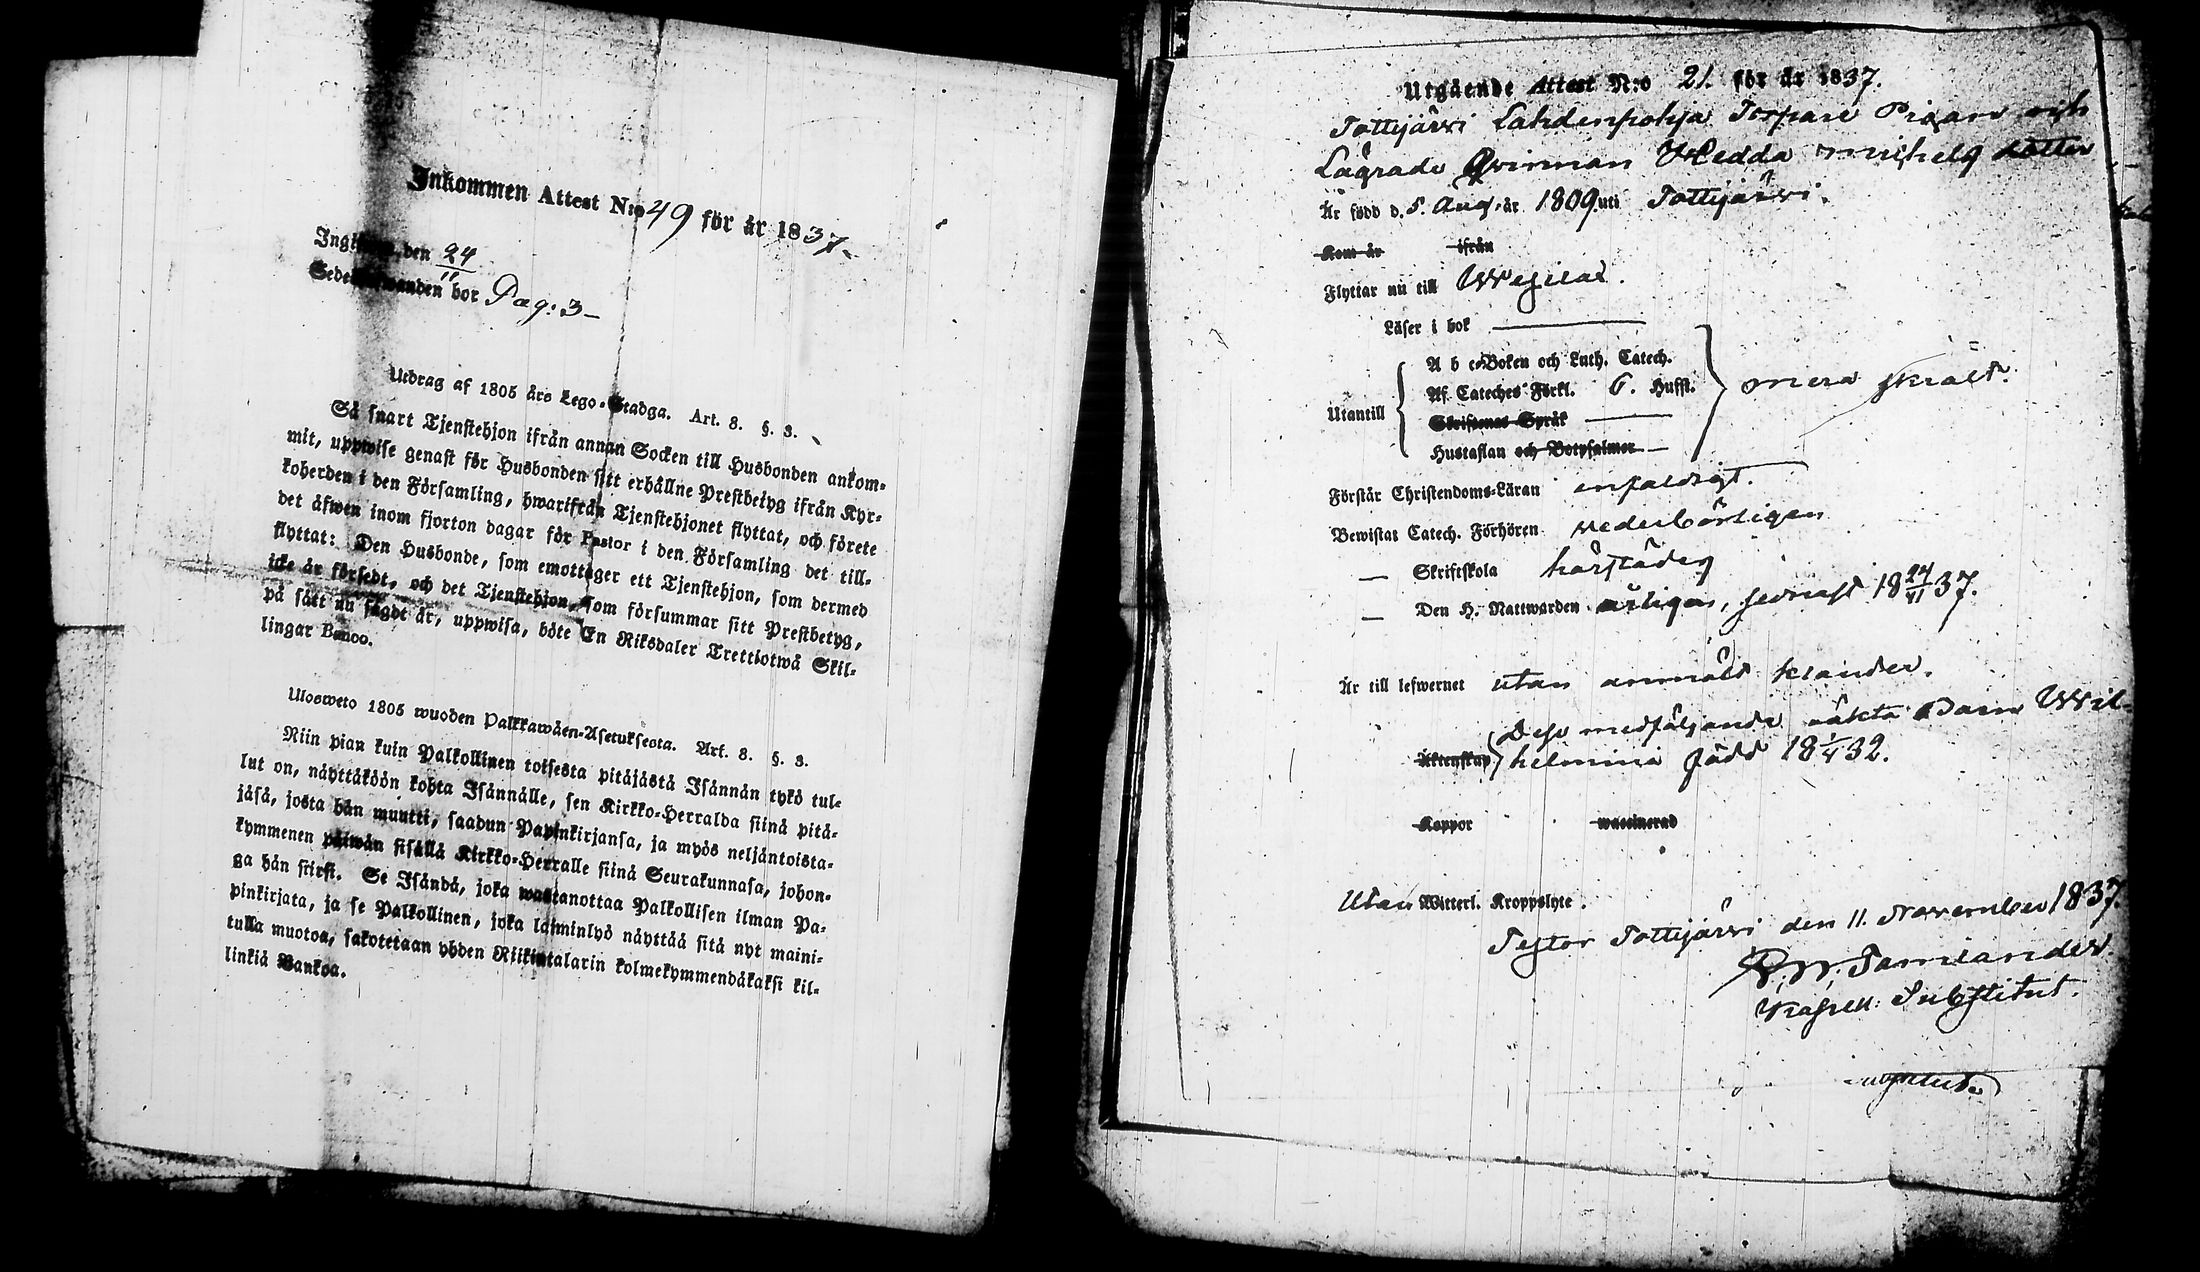 Inkommen Attest N:o 49 för år 1837.
Ingifven den 24/11
Sedelhafwanden bor Pag: 3
Utdrag af 1805 års Lego-Stadga. Art. 8. §. 3.
Så snart Tjenstehjon ifrån annan Socken till Husbonden ankom-
mit, uppwise genast för Husbonden sitt erhållne Prestbetyg ifrån Kyr-
koherden i den Församling, hwarifrån Tjenstehjonet flyttat, och förete
det äfwen inom fjorton dagar för Pastor i den Församling det till-
flyttat: Den Husbonde, som emottager ett Tjenstehjon, som dermed
icke är försedt, och det Tjenstehjon, som försummar sitt Prestbetyg,
på sätt nu sagdt är, uppwisa, böte En Riksdaler Trettiotwå Skil-
lingar Banco.
Ulosweto 1805 wuoden Palkkawäen-Asetuksesta. Art. 8. §. 3.
Niin pian kuin Palkollinen toisesta pitäjästä Isännän tykö tul-
lut on, näyttäköön kohta Isännälle, sen Kirkko-Herralda siinä pitä-
jäsä, josta hän muutti, saadun Papinkirjansa, ja myös neljäntoista-
kymmenen päiwän sisällä Kirkko-Herralle siinä Seurakunnasa, johon-
ga hän siirsi. Se Isändä, joka wastanottaa Palkollisen ilman Pa-
pinkirjata, ja se Palkollinen, joka laiminlyö näyttää sitä nyt maini-
tulla muotoa, sakotetaan yhden Riikintalarin kolmekymmendäkaksi kil-
linkiä Bankoa.
Utgående Attest N:o 21. för år 1837.
Tottijärvi Lahdenpohja Torpare Pigan och
Lägrade Qvinnan Hedda Michels dotter
Är född d. 5. Aug. år 1809. uti Tottijärvi.
Kom år ifrån
Flyttar nu till Wesilax.
Läser i bok
A b c-Boken och Luth. Catech.
Af Cateches Förkl. 6. Hufst.
Utantill
Skriftenes Språk
Hustaflan och Botpsalmer
Förstår Christendoms-Läran enfaldigt.
Bewistat Catech. Förhören vederbörligen
— Skriftskola härstädes
— Den H. Nattwarden årligen, sednast 18 37.
Är till lefwernet utan anmält klander.
Dess medföljande oäkta Barn Wil-
Äktenskap helmina född 18 1/4 32.
Koppor waccinerad
Utan Witterl. Kroppslyte.
Tottijärvi den 11. November 1837.
Substitut.